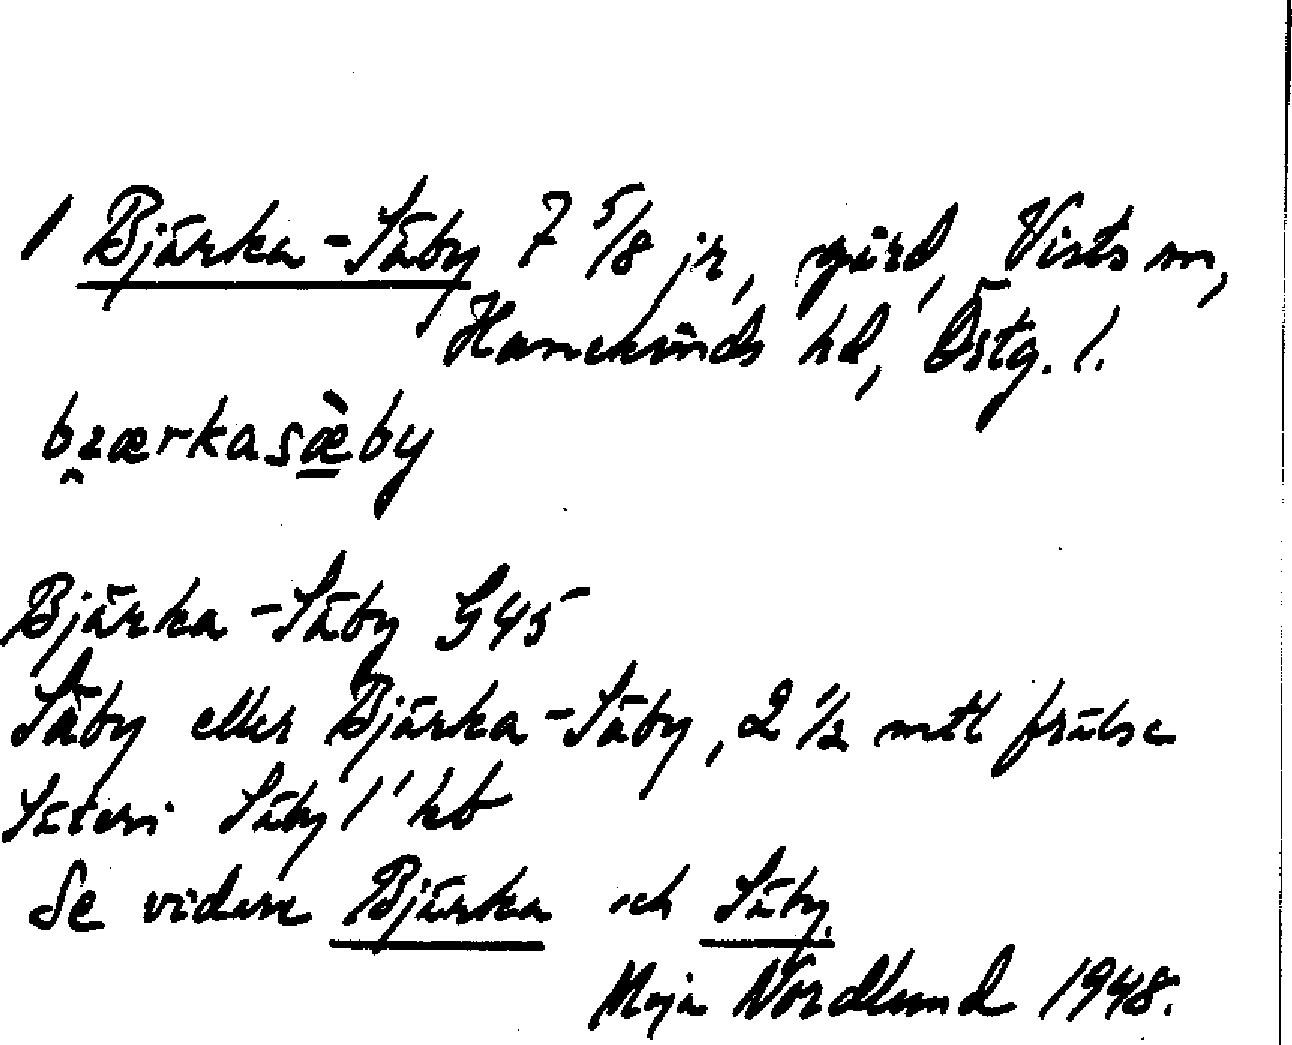 1 Bjärka-Säby 7 5/8 jr, gård, Vists sn,
Hanekinds hd, Östg. l.
bɪ̯ærkasæ̀by
Bjärka-Säby G45
Säby eller Bjärka-Säby, 2 1/2 mtl frälse
Säteri Säby 1' kb
Se vidare Bjärka och Säby.
Maja Nordlund 1948.